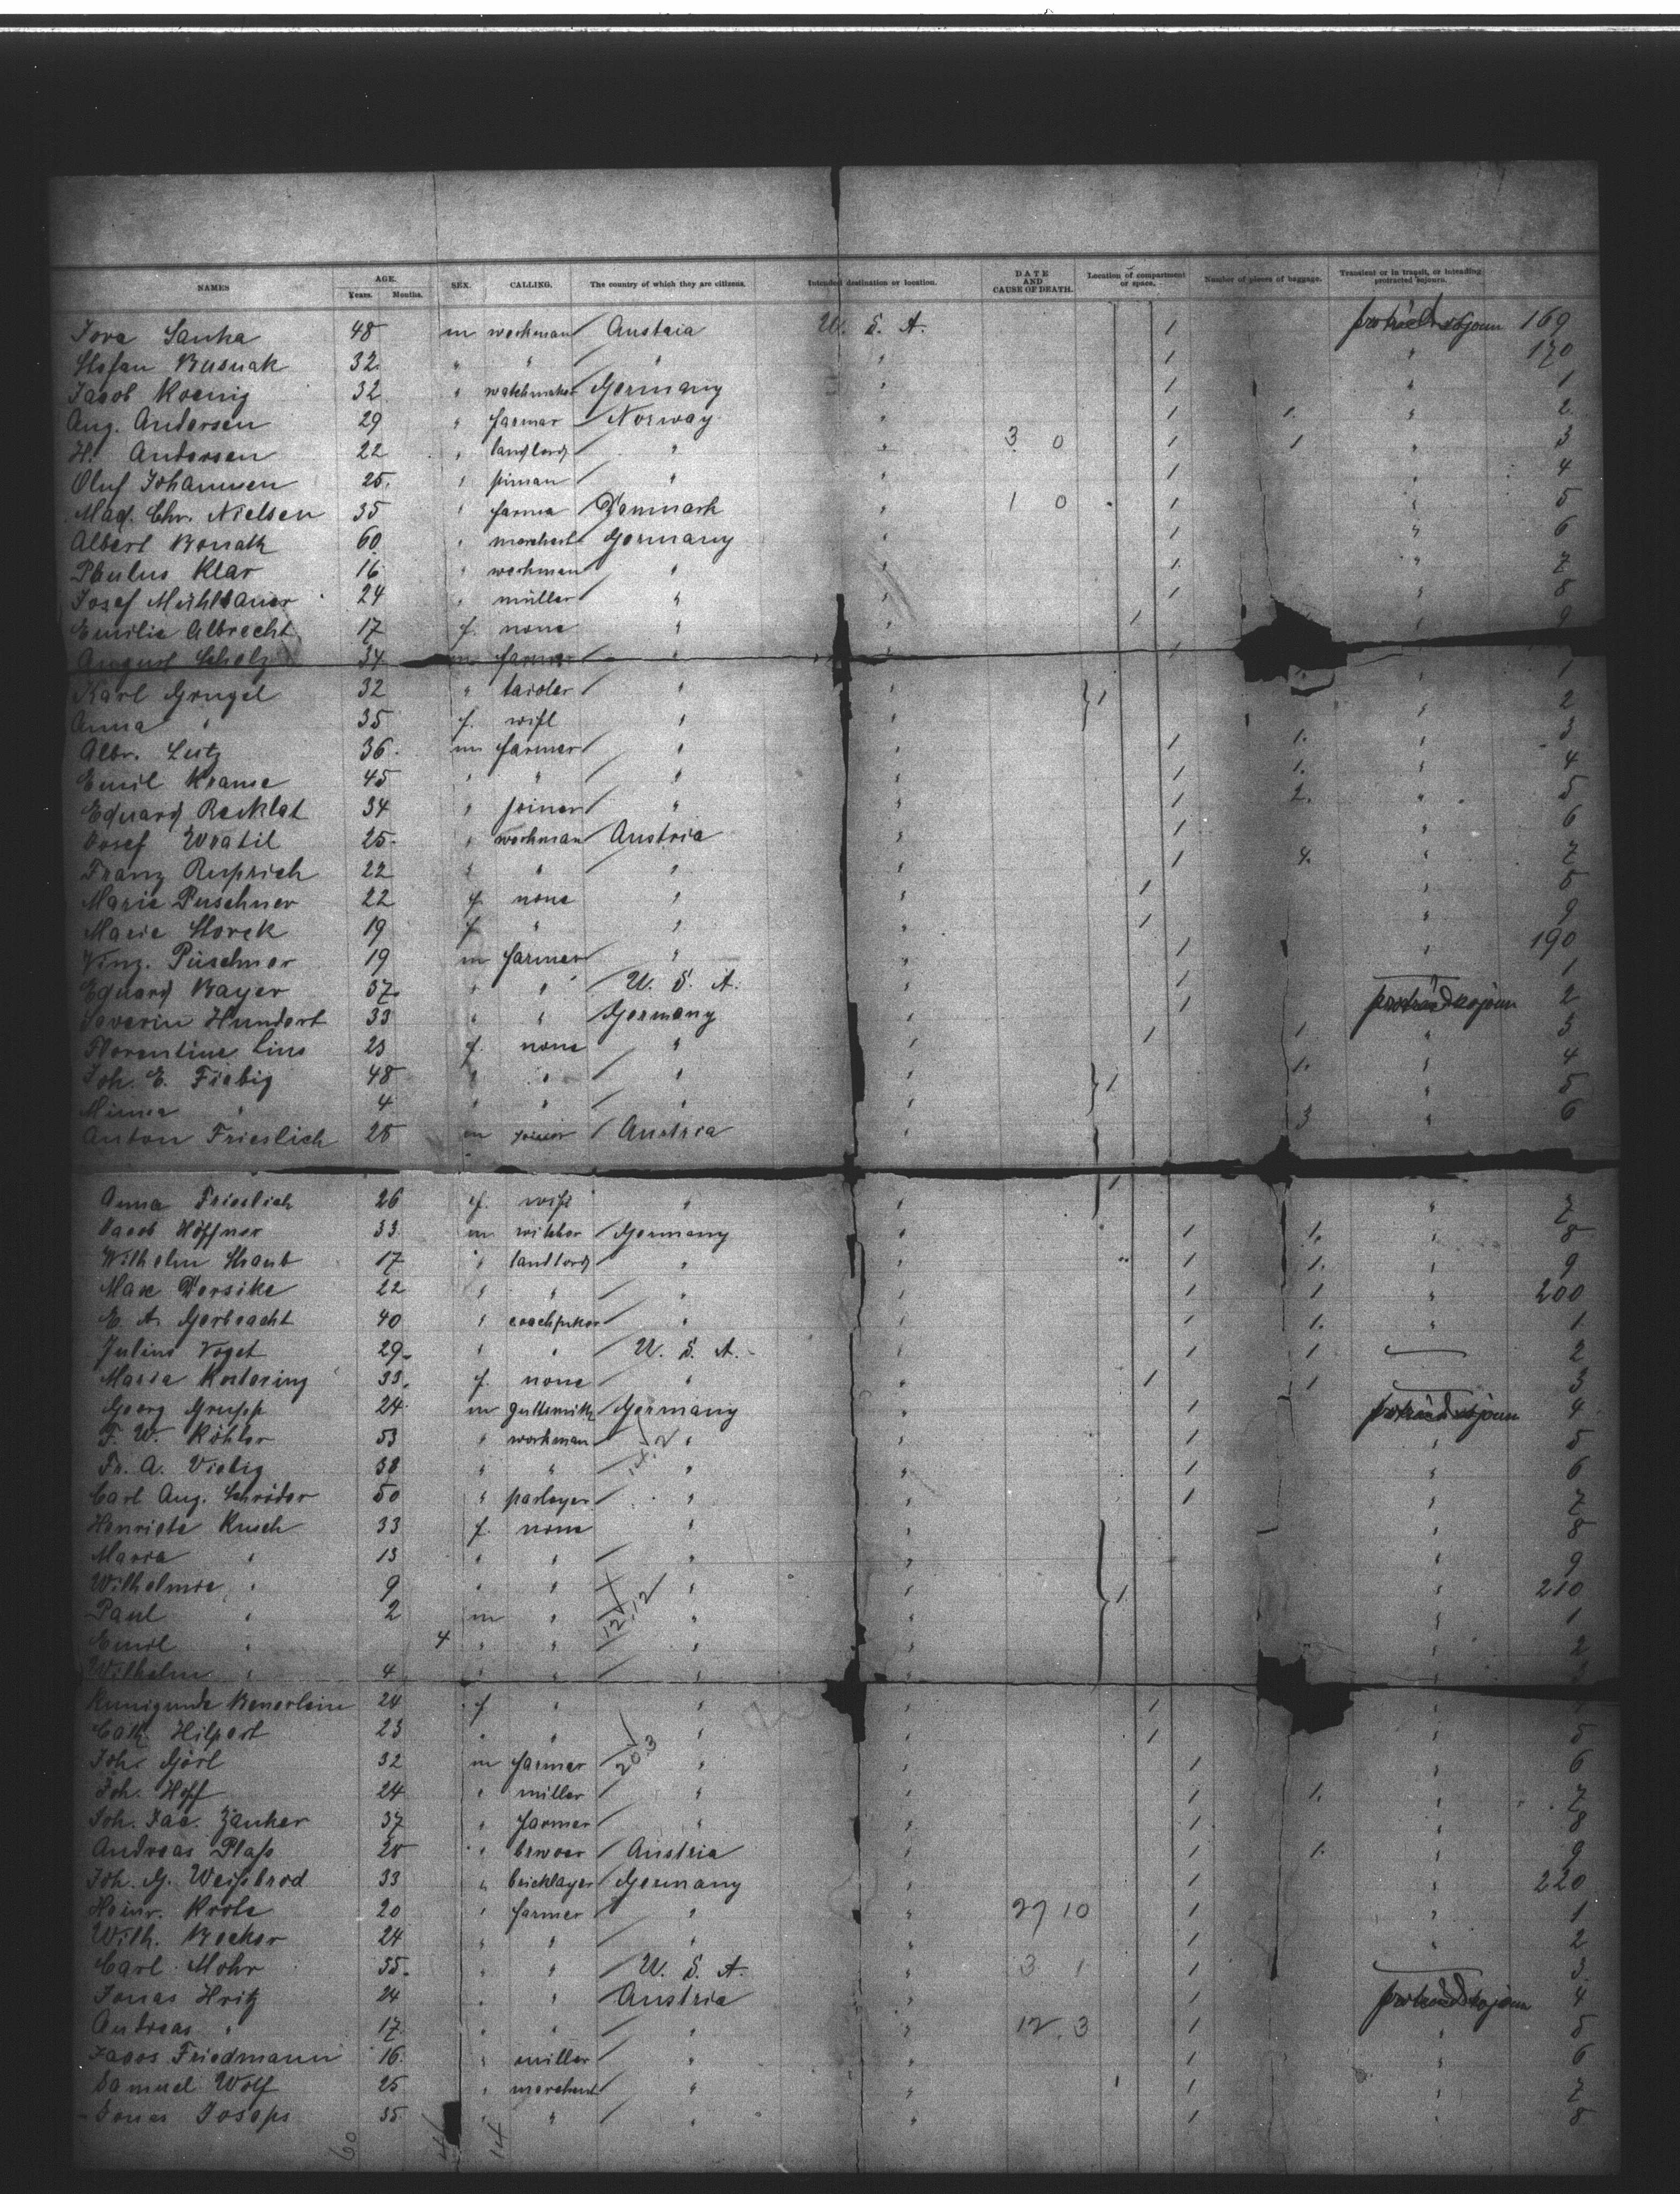 NAMES AGE. Years. Months. SEX. CALLING. The country of which they are citizens. Intended destination or location. DATE AND CAUSE OF DEATH. Location of compartment or space. Number of pieces of baggage. Transient or in transit, or intending protracted sojourn.
Jova Sanka 48 m workman Austria U. S. A. 1 169
Stefan Busnak 32 " " " " 1 " 170
Jacob Koenig 32 " watchmaker Germany " 1 " 1
Aug. Andersen 29 " farmer Norway " 1 1. " 2
H. Andersen 22 " landlord " " 3 0 1 1 " 3
Oluf Johannsen 25. " " " 1 " 4
Mad. Chr. Nielsen 35 " farma Danmark " 1 0 1 " 5
Albert Bonath 60 " merchant Germany " 1 " 6
Paulus Klar 16 " workman " " 1 " 7
Josef Mühlbauer 24 " müller " " 1 " 8
Emilie Albrecht 17 f. none " " 1 " 9
August Scholz 34 m farmer " " 1
Karl Grugel 32 " " " 1 " 1
Anna " 35 f. wife " " " 2
Albr. Lutz 36. m farmer " " 1 1. " 3
Emil Krause 45 " " " " 1 1. " 4
Eduard Rasklat 34 " joiner " " 1 2. " 5
Josef Wratil 25. " workman Austria " 1 " 6
Franz Ruprich 22 " " " " 1 4. " 7
Marie Puschner 22 f. none " " 1 " 8
Marie Storek 19 f " " " 1 " 9
Vinz. Püschner 19 m farmer " " 1 " 190
Eduard Bayer 37. " " U. S. A. " 1 1
Severin Hundert 33 " " Germany " 1 2
Florentine Lins 23 f. none " " 1 1. " 3
Joh. E. Fiebig 48 " " " " 1 1. " 4
Minna " 4 " " " " " 5
Anton Frieslich 28 m joiner Austria " 3 " 6
Anna Frieslich 26 f. wife " " 1 " 7
Jacob Höffner 33 m Germany " 1 1. " 8
Wilhelm Straub 17 " landlord " " 1 1. " 9
Max Dersike 22 " " " " 1 1 " 200
E. A. Gerbracht 40 " " " 1 1. " 1
Julius Voget 29. " " U. S. A. " 1 1 2
Maria Kortering 33. f. none " " 1 1 3
Georg Grupp 24. m Germany " 1 4
F. W. Köhler 53 " workman " " 1 " 5
Fr. A. Viebig 38 " " " " 1 " 6
Carl Aug. Schröder 50 " " " 1 " 7
Henriete Rusch 33 f. none " " 8
Maria " 13 " " " " " 9
Wilhelmie " 9 " " " " 1 " 210
Paul " 2 m " " " " 1
Emil " 4 " " " " " 2
Wilhelm " 4 " " " "
Kunigunde Benerlein 24 f " " " 1 "
Cath. Hilpert 23 " " " " 1 5
Joh. Görl 32 m farmer " " 1 " 6
Joh. Hopf 24 " miller " " 1 1. " 7
Joh. Jac. Zanker 37 " farmer " " 1 " 8
Andreas Plaß 28 " Austria " 1 1. " 9
Joh. G. Weißbrod 33 " bricklayer Germany " 1 " 220
Heinr. Krote 20 " farmer " " 27 10 1 " 1
Wilh. Becker 24 " " " " 1 " 2
Carl Mohr 55. " " U. S. A. " 3 1 1 3
Jonas Hritz 24 " " Austria " 1 4
Andreas " 17 " " " " 12.3 1 " 5
Jacos Friedmann 16 " miller " " 1 " 6
Samuel Wolf 25 " merchant " " 1 " 7
Jonas Joseps 35 " " " " 1 " 8
60 14